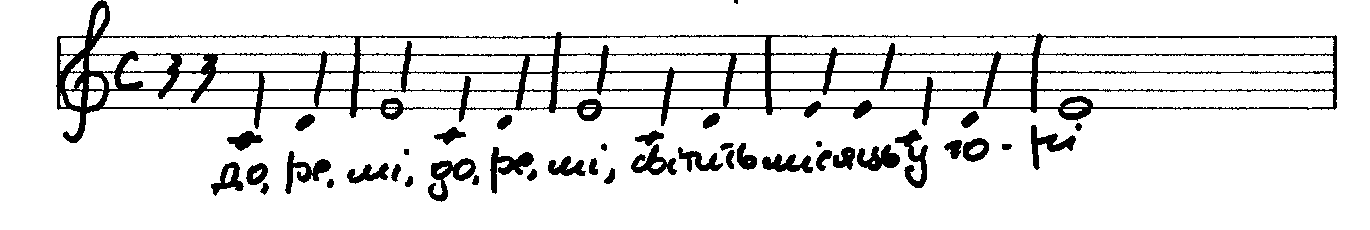 до, ре, мі, до, ре, мі, світить місяць у го - рі